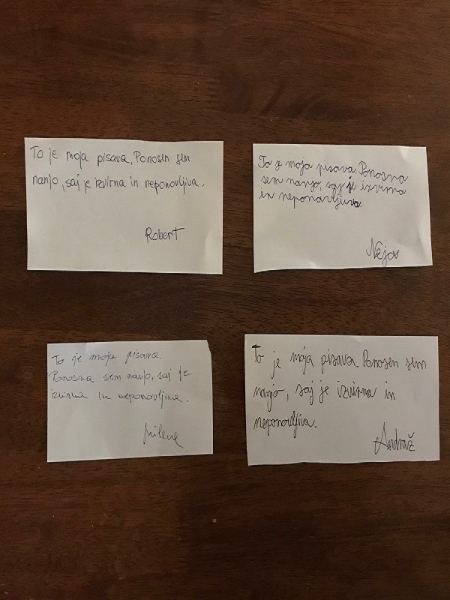 To je moja pisava. Ponosen sem
nanjo, saj je izvirna in neponovljiva.
Robert
To je moja pisava. Ponosna
sem nanjo, saj je izvirna
in neponovljiva.
Neja
To je moja pisava.
Ponosna sem nanjo, saj je
izvirna in neponovljiva.
Milena
To je moja pisava Ponosen sem
nanjo, saj je izvirna in
neponovljiva.
Andraž